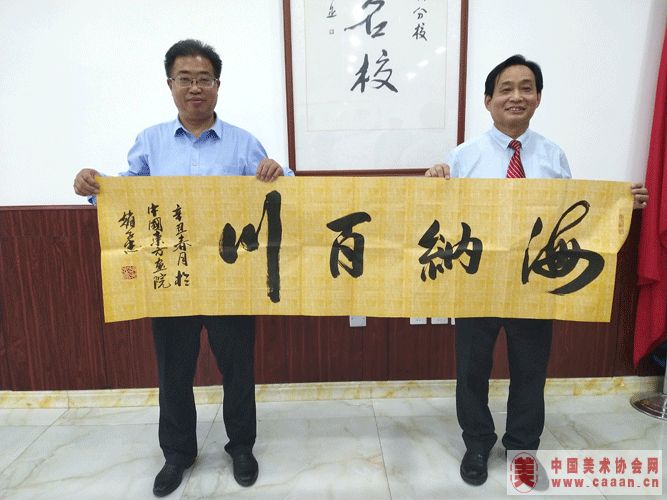 分校
名校
海納百川
辛丑春月於
中國東方画院
美
中国美术协会网
www.caaan.cn